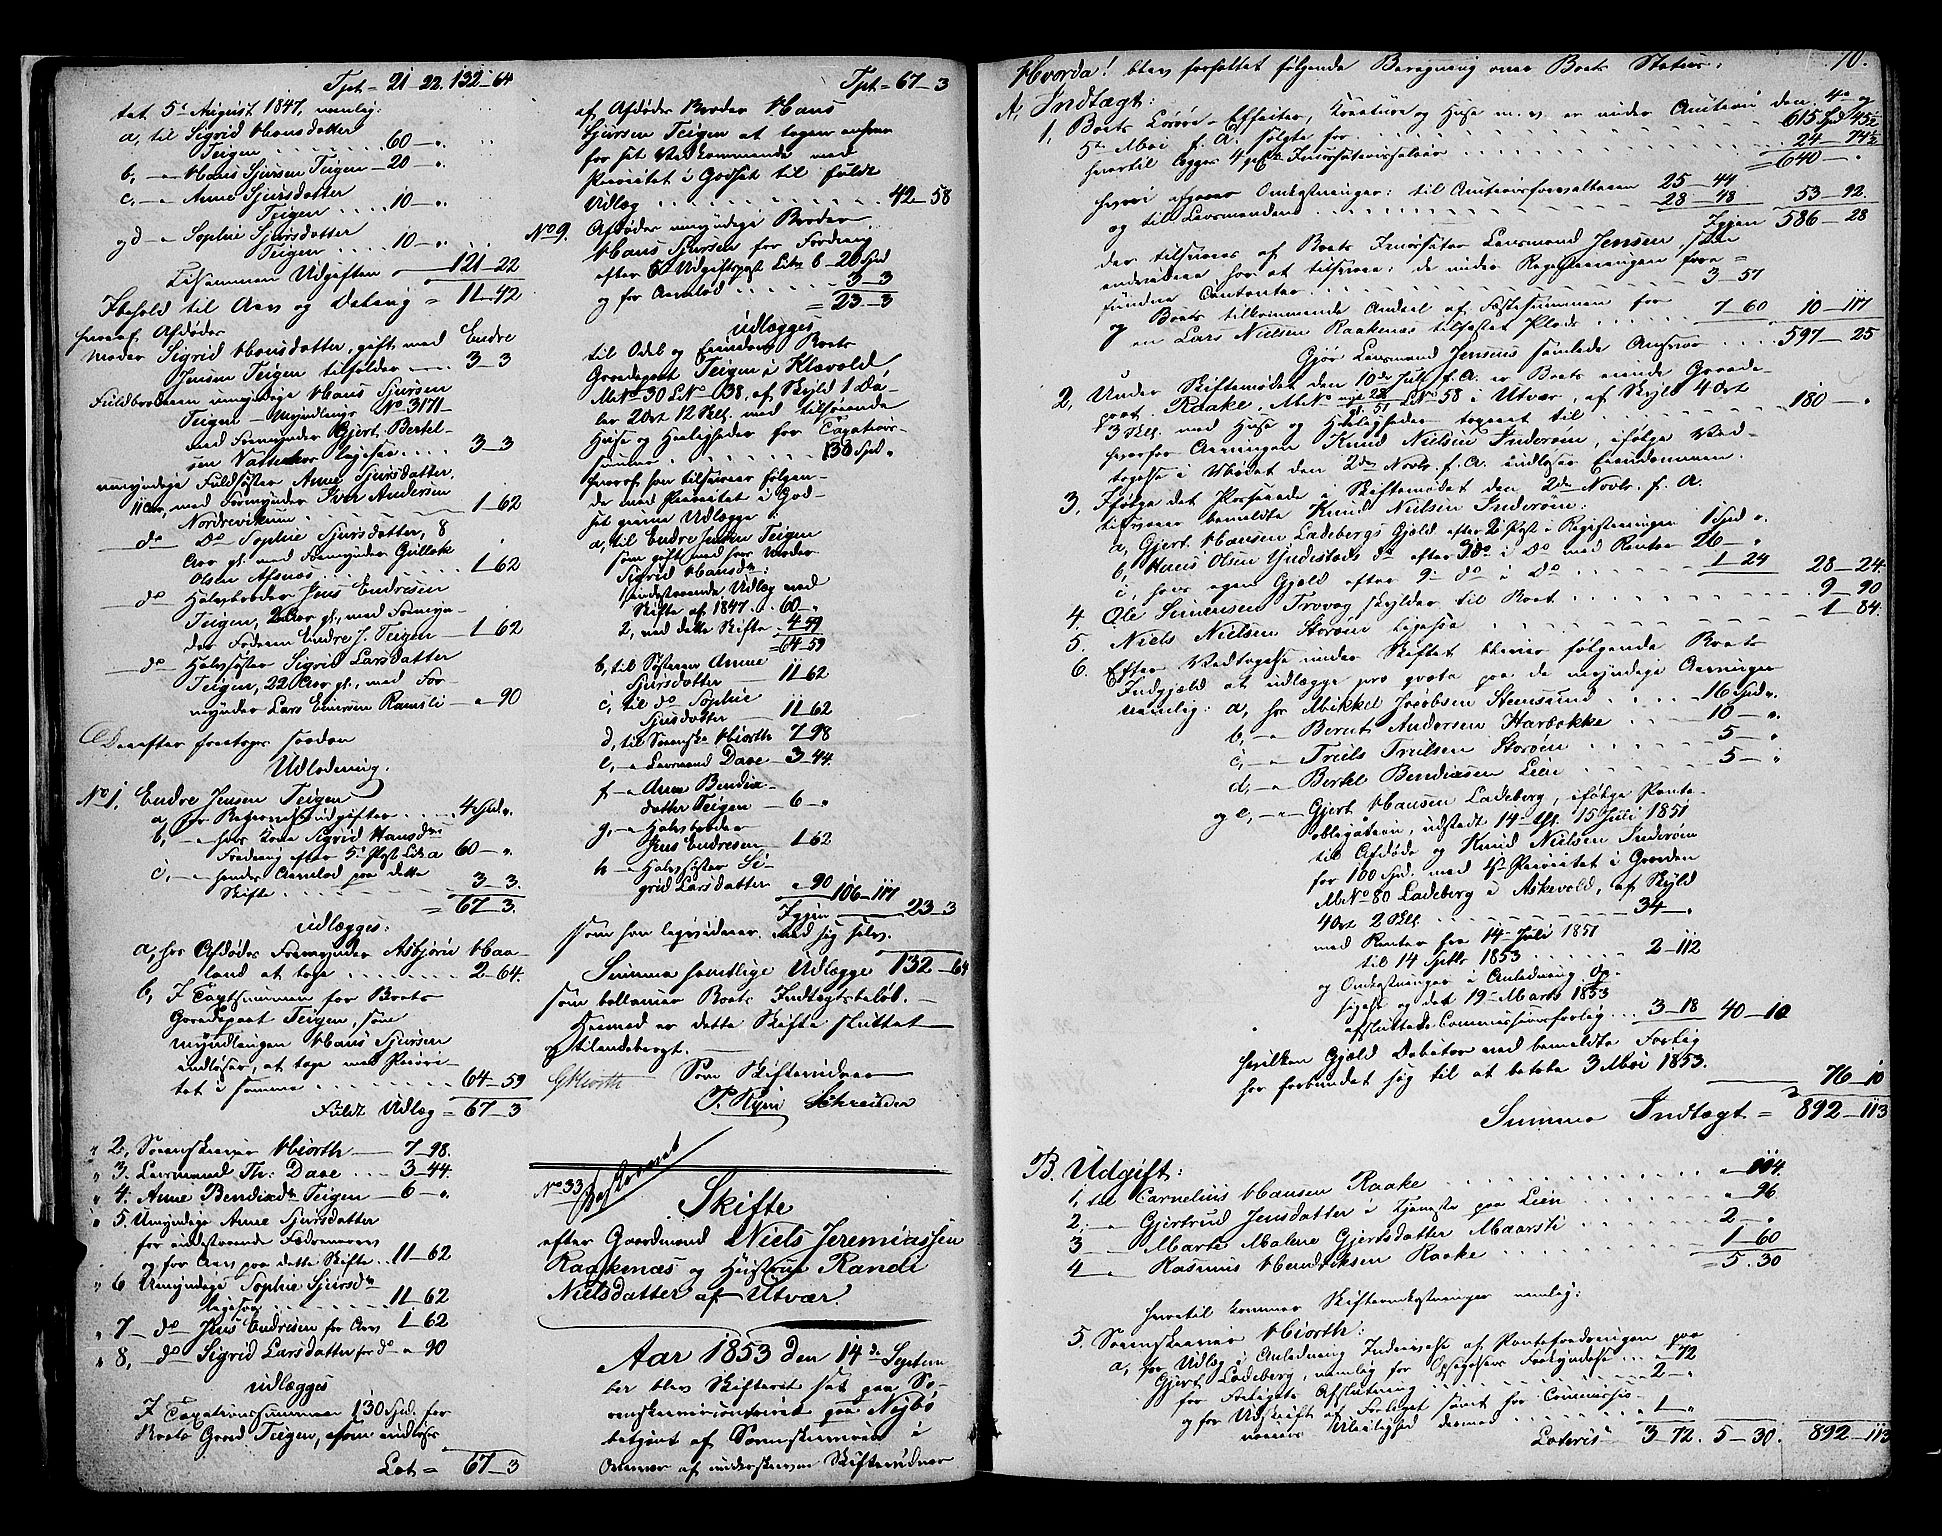 Tpt = 21 - 22. 132 - 64
tet 5te August 1847, nemlig:
a, til Sigrid Hansdatter
Teigen ..... 60 - "
b, - " Hans Sjursen Teigen - 20 - "
c, - " Anne Sjursdatter
Teigen .... 10 - "
og d - " Sophie Sjursdatter
Teigen .... 10 - "
Tilsammen Udgiften = 121 - 22
Ibehold til Arv og Deling = 11 - 42
hvoraf Afdødes
Moder Sigrid Hansdatter, gift med Endre
Jensen Teigen tilfalder .... 3 - 3
Fuldbroderen umyndige Hans Sjursen
Teigen - Umyndlings No 3171 -
med Formynder Gjert Bertel-
sen ligesaa .... 3 - 3
umyndige Fuldsøster Anne Sjursdatter,
11 Aar, med Formynder Iver Andersen
Nordrevik ..... 1 - 62
do Do Sophie Sjursdatter, 8
Aar gl. med Formynder Gullak
Olsen ...... 1 - 62
do Halvbroder Jens Endresen
Teigen, 2 Aar gl., med Formyn-
der Faderen Endre J. Teigen - 1 - 62
do Halvsøster Sigrid Larsdatter
Teigen, 22 Aar gl., med For-
mynder Lars Ramsli - " 90
Derefter foretoges saadan
Udlodning.
No 1. Endre Jensen Teigen
a, for Begravelsesudgifter .... 4 Spd ".
b, - hans Kone Sigrid Hansdrs
Fordring efter 5te Post Litr. a 60 - "
c, - hendes Arvelod paa dette
Skifte ........ 3 - 3.
= 67 - 3.
udlægges:
a, hos Afdødes Formynder Asbjørn Haa-
land at tage ...... 2 - 64.
b, I Taxtsummen for Boets
Gaardepart Teigen, som
Myndlingen Hans Sjursen
indløser, at tage med Priori-
tet i samme ....... 64 - 59
Fuldt Udlæg = 67 - 3
" 2, Sorenskriver Hiorth - 7 - 98.
" 3. Lensmand Th: Daae .... 3 - 44.
" 4. Anne Bendixdr Teigen - 6 - ".
" 5. Umyndige Anne Sjursdatter
for indestaaende Fædrenearv
og for Arv paa dette Skifte .. 11 - 62
" 6 Umyndige Sophie Sjursdr
ligesaa ....... 11 - 62
" 7 - do Jens Endresen for Arv 1 - 62
" 8, - do Sigrid Larsdatter for do " 90
udlægges
I Taxationssummen 130 Spd. for
Boets Gaard Teigen, som indløses
Lat = 67 - 3
Tpt = 67 - 3
af Afdødes Broder Hans
Sjursen Teigen at tages
for sit Vedkommende med
Prioritet i Godset til fuldt
Udlæg ........ 42 - 58
No 9. Afdødes umyndige Broder
Hans Sjursen for Fordring
efter 5te Udgiftspost Litr. b - 20 Spd
og for Arvelod ..... 3 - 3
= 23 - 3
udlægges
til Odel og Eiendom Boets
Gaardepart Teigen i Klævold
M.No 30 L.No 138, af Skyld 1 Da-
ler 2 Ort 12 Skl. med tilhørende
Huse og Herligheder for Taxations-
summen ....... 130 Spd ".
hvoraf han tilsvarer følgen-
de med Prioritet i God-
set givne Udlægge:
a, til Endre Jensen Teigen
som gift med hans Moder
Sigrid Hansdr:
indestaaende Udlæg ved
Skifte af 1847 .. 60 - "
2, ved dette Skifte . 4 - 59
= 64 - 59
b, til Søsteren Anne
Sjursdatter - 11 - 62
c, til do Sophie
Sjursdatter - 11 - 62
d, til Sorenskr. Hiorth 7 - 98
e, - " Lensmand Daae - 3 - 44.
f - " Anne Bendix-
datter Teigen - 6 - "
g, - " Halvbroder
Jens Endresen - 1 - 62
h - " Halvsøster Si-
grid Larsdatter " 90 106 - 117
Igjen 23 - 3
som han liqviderer med sig selv.
Summa samtlige Udlægge 132 - 64
som ballancerer Boets Indtægtsbeløb. -
Hermed er dette Skifte sluttet
og tilendebragt.
GHiorth Som Skiftevidner
P. Ryin Schreuder
No 33
Skifte
efter Gaardmand Niels Jeremiassen
Raakenæs og Hustrue Randi
Nielsdatter af Utvær.
Aar 1853 den 14de Septem-
ber blev Skifteret sat paa So-
renskrivercontoiret paa Nejbø
betjent af Sorenskriveren i
Overvær af underskrevne Skiftevidner
70.
Hvorda! blev forfattet følgende Beregning over Boets Status:
A, Indtægt:
1, Boets Løsøre - Effecter, Kreature og Huse m. v. er under Auction den 4de og
5te Mai f. A. solgte for ....... 615 Spd 45½
hvortil lægges 4 pCt Incassationssalair ....... 24 - 74½
= 640 - "
hvori afgaaer Omkostninger: til Auctionsforvalteren 25 - 44
og til Lensmanden ........ 28 - 48 53 - 92.
Igjen 586 - 28
der tilsvares af Boets Incassator Lensmand Jensen, som
endvidere har at tilsvare: de under Registreringen fore-
fundne Contanter ........ 3 - 57
og Boets tilkommende Andeel af Festesummen for
en Lars Nielsen Raakenæs tilfæstet Plads ..... 7 - 60 10 - 117
Gjør Lensmand Jensens samlede Ansvar .... 597 - 25
2, Under Skiftemødet den 10de Juli f. A. er Boets eiende Gaarde-
part Raake, M.No nye 22 gl. 51 L.No 58 i Utvær, af Skyld 4 Ort
3 Skl. med Huse og Herligheder taxeret til ....... 180 - "
hvorfor Arvingen Knud Nielsen Inderøen, ifølge Ved-
tagelse i Mødet den 2den Novbr. f. A. indløser Eiendommen.
3, Ifølge det Passerede i Skiftemødet den 2den Novbr. f. A.
tilsvarer bemeldte Knud Nielsen Inderøen:
a, Gjert Hansen Ladebergs Gjæld efter 2den Post i Registreringen 1 Spd ".
b, Hans Olsen Yndestads do efter 3de i Do med Renter 26 - "
c, hans egen Gjæld efter 9de do i Do ....... 1 - 24 28 - 24.
4. Ole Simensen Trovaag skylder til Boet ......... 9 - 90
5. Niels Nielsen Storøen ligesaa ......... 1 - 84.
6. Efter Vedtagelse under Skiftet bliver følgende Boets
Indgjæld at udlægge pro qvota paa de myndige Arvinger
nemlig: a, hos Mikkel Jacobsen Steensund .... 16 Spd ".
b, - " Berent Andersen Hardbakke .... 10 - ".
c, - " Truls Trulsen Storøen ...... 5 - "
d, - " Bertel Bendixsen Lien ...... 5 - "
og e, - " Gjert Hansen Ladeberg, ifølge Pante-
obligation, udstedt 14de thl. 15 Juli 1851
til Afdøde og Knud Nielsen Inderøen
for 100 Spd. med 1ste Prioritet i Gaarden
M.No 80 Ladeberg i Askevold, af Skyld
4 Ort 2 Skl. ........ 34 - "
med Renter fra 14de Juli 1851
til 14 Septbr 1853 ...... 2 - 112
og Omkostninger i Anledning Op-
sigelse og det 19de Marts 1853
afsluttede Commissionsforlig ... 3 - 18 40 - 10
hvilken Gjæld Debitor ved bemeldte Forlig
har forbundet sig til at betale 3 Mai 1853. 76 - 10
Summa Indtægt = 892 - 113
B. Udgift:
1, til Cornelius Hansen Raake ........ " 104.
2, - " Gjertrud Jensdatter i Tjeneste paa Lien ...... " 96
3 - " Marte Malene Gjertsdatter Maarsti ...... 2 - "
4 - " Rasmus Hendriksen Raake ....... 1 - 60
= 5 . 30
hvortil kommer Skifteomkostninger nemlig:
5. Sorenskriver Hiorth:
a, for Udlæg i Anledning Inddrivelse af Pantefordringen paa
Gjert Ladeberg, nemlig for Opsigelsens Forkyndelse ... - 72
for Forligets Afslutning ........ 2 - ".
og for Udskrift af Forliget samt for Commissio-
nairens Uleilighed dermed ..... 1 - "
Lateris 3 - 72. 5 - 30. 892 - 113